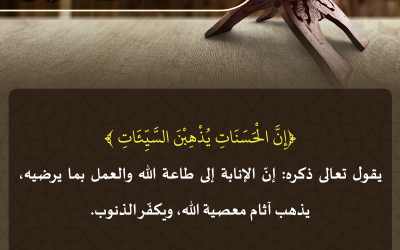 ﴿إِنَّ الْحَسَنَاتِ يُذْهِبْنَ السَّيِّئَاتِ ﴾
يقول تعالى ذكره: إنّ الإنابة إلى طاعة الله والعمل بما يرضيه،
يذهب آثام معصية الله، ويكفّر الذنوب.